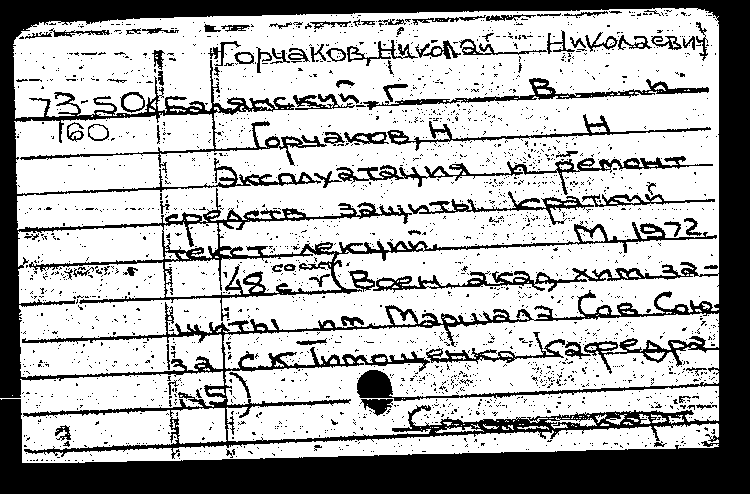 Горчаков, Николай Николаевич
73-50к Белянский, Г В и
160 Горчаков, Н Н
Эксплуатация и ремонт
средств защиты Краткий
текст лекций. М., 1972.
48 с. (Воен. акад. хим. за-
щиты им. Маршала Сов. Сою-
за С.К. Тимошенко Кафедра
N5)